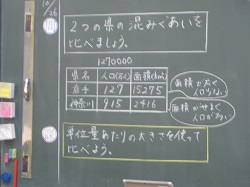 10/26
2つの県の混みぐあいを
比べましょう。
1270000
県名 人口(万人) 面積(km²)
岩手 127 15275
神奈川 915 2416
面積が広く
人口少ない
面積がせまく
人口が多い
単位量あたりの大きさを使って
比べよう。